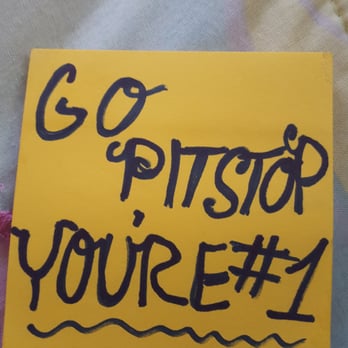 GO
PITSTOP
YOU'RE #1